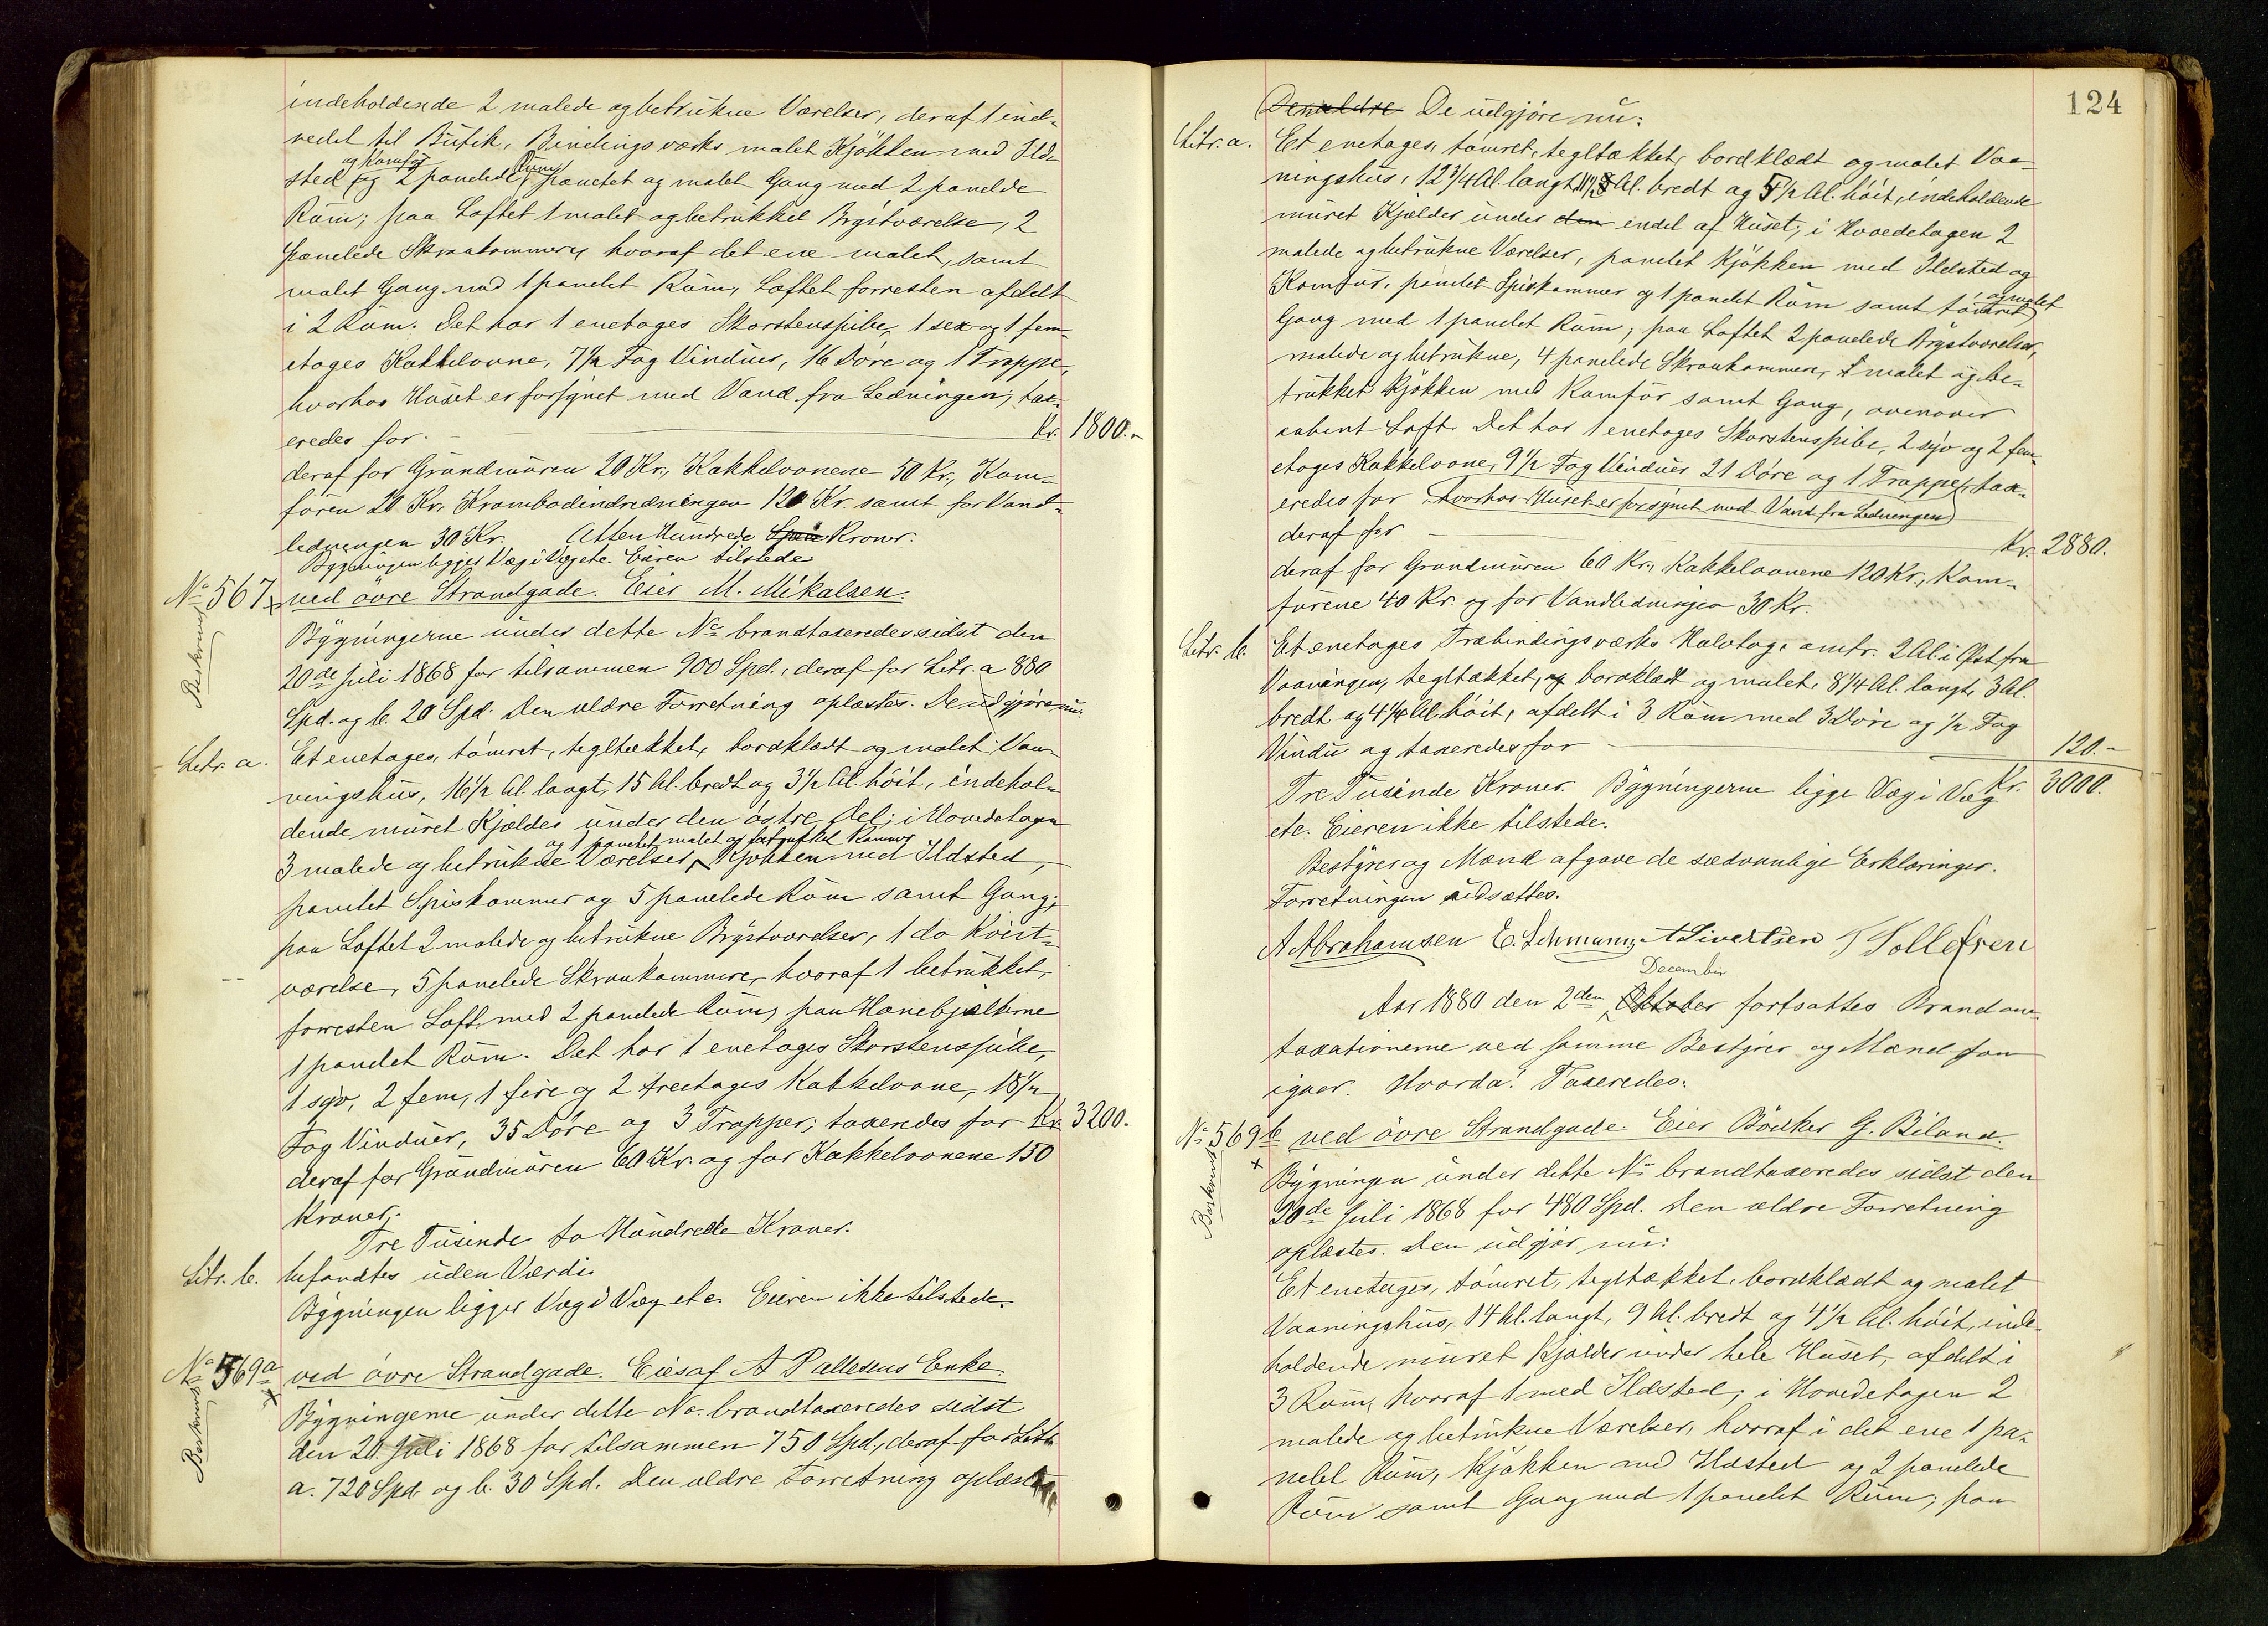 indeholdende 2 malede og betrukne Værelser, deraf 1 ind-
redet til Butik, Bindingsværks malet Kjökken med Ild-
sted og Komfür og 2 panelede Rum, panelet og malet Gang med 2 panelde
Rüm; paa Loftet 1 malet og betrukket Brystværelse, 2
panelede Skraakammere, hvoraf det ene malet, samt
malet Gang med 1 panelet Rüm, Loftet forresten afdelt
i 2 Rüm. Det har 1 enetages Skorstenspibe, 1 sex og 1 fem-
etages Kakkelovne, 7 1/2 Fag Vindüer, 16 Döre og 1 Trappe,
hvorhos Huset er forsynet med Vand fra Ledningen; tax-
eredes for Kr. 1800.-
deraf for Grundmuren 20 Kr., Kakkelovnene 50 Kr., Kom-
füren 20 Kr., Krambodindredningen 120 Kr. samt for Vand-
ledningen 30 Kr. Atten Hundrede Kroner.
Bygningen ligger Væg i Væg etc. Eieren tilstede
No 567 ved övre Strandgade. Eier M. Mikalsen.
Beskrevet
Bygningerne under dette No brandtaxeredes sidst den
20de Juli 1868 for tilsammen 900 Spd., deraf for Litr. a 880
Spd. og b. 20 Spd. Den ældre Forretning oplæstes. De udgjöre nu:
Litr. a. Et enetages, tömret, tegltækket, bordklædt og malet Vaa-
ningshus, 16 1/2 Al. langt, 15 Al. bredt og 3 1/2 Al. höit, indehol-
dende muret Kjælder under den östre Del; i Hovedetagen
og 1 panelet malet og betrukket Kammer
3 malede og betrukne Værelser, Kjökken med Ildsted,
panelet Spiskammer og 5 panelede Rum samt Gang;
paa Loftet 2 malede og betrukne Brystværelser, 1 do Kvist-
værelse, 5 panelede Skraakammere, hvoraf 1 betrukket,
forresten Loft med 2 panelede Rum, paa Hanebjælkerne
1 panelet Rüm. Det har 1 enetages Skorstenspibe,
1 syv, 2 fem, 1 fire og 2 treetages Kakkelovne, 18 1/2
Fag Vinduer, 35 Döre og 3 Trapper; taxeredes for Kr. 3200.
deraf for Grundmuren 60 Kr. og for Kakkelovnene 150
Kroner.
Tre Tusinde to Hundrede Kroner.
Litr. b. befandtes uden Værdi.
Bygningen ligger Væg i Væg etc. Eieren ikke tilstede.
No 569a ved övre Strandgade. Eies af A Pallesens Enke.
Beskrevet
Bygningerne under dette No. brandtaxeredes sidst
den 20. Juli 1868 for tilsammen 750 Spd., deraf for Litr.
a. 720 Spd og b. 30 Spd. Den ældre Forretning oplæstes
124
Den ældre De udgjöre nu:
Litr. a. Et enetages, tömret, tegltækket, bordklædt og malet Vaa-
ningshus, 12 3/4 Al. langt, Al. bredt og 5 1/2 Al. höit, indeholdende
muret Kjælder under den endel af Huset; i Hovedetagen 2
malede og betrukne Værelser, panelet Kjökken med Ildsted og
Komfur, panelet Spiskammer og 1 panelet Rum samt tömret og malet
Gang med 1 panelet Rüm; paa Loftet 2 panelede Brystværelser,
malede og betrukne, 4 panelede Skraakammere, 1 malet og be-
trukket Kjökken med Komfür samt Gang, ovenover
aabent Loft. Det har 1 enetages Skorstenspibe, 2 syv og 2 fem-
etages Kakkelovne, 9 1/2 Fag Vinduer 21 Döre og 1 Trappe, tax-
eredes for (hvorhos Huset er forsynet med Vand fra Ledningen)
deraf for Kr. 2880.
deraf for Grundmuren 60 Kr., Kakkelovnene 120 Kr., Kom-
furene 40 Kr. og for Vandledningen 30 Kr.
Litr. b. Et enetages Træbindingsværks Halvtag, omtr. 2 Al. i Öst fra
Vaaningen, tegltækket, og bordklædt og malet, 8 1/4 Al. langt, 3 Al.
bredt og 4 1/4 Al. höit, afdelt i 3 Rüm med 3 Döre og 1/2 Fag
Vindu og taxeredes for 120.-
Tre Tusinde Kroner. Bygningerne ligge Væg i Væg Kr. 3000.
etc. Eieren ikke tilstede.
Bestyrer og Mænd afgave de sædvanlige Erklæringer.
Forretningen udsættes.
A Abrahamsen E. Lehmann A Sivertsen T Tollefsen
December
Aar 1880 den 2den Oktober fortsattes Brandom-
taxationerne ved samme Bestyrer og Mænd som
igaar. Hvorda! Taxeredes:
No 569b ved övre Strandgade. Eier Bödker G. Biland.
Beskrevet
Bygningen under dette No brandtaxeredes sidst den
20de Juli 1868 for 480 Spd. Den ældre Forretning
oplæstes. Den udgjör nu:
Et enetages, tömret, tegltækket, bordklædt og malet
Vaaningshus, 14 Al. langt, 9 Al. bredt og 4 1/2 Al. höit, inde-
holdende muret Kjælder under hele Huset, afdelt i
3 Rum, hvoraf 1 med Ildsted; i Hovedetagen 2
malede og betrukne Værelser, hvoraf i det ene 1 pa-
nelet Rum, Kjökken med Ildsted og 2 panelede
Rum samt Gang med 1 panelet Rüm; paa